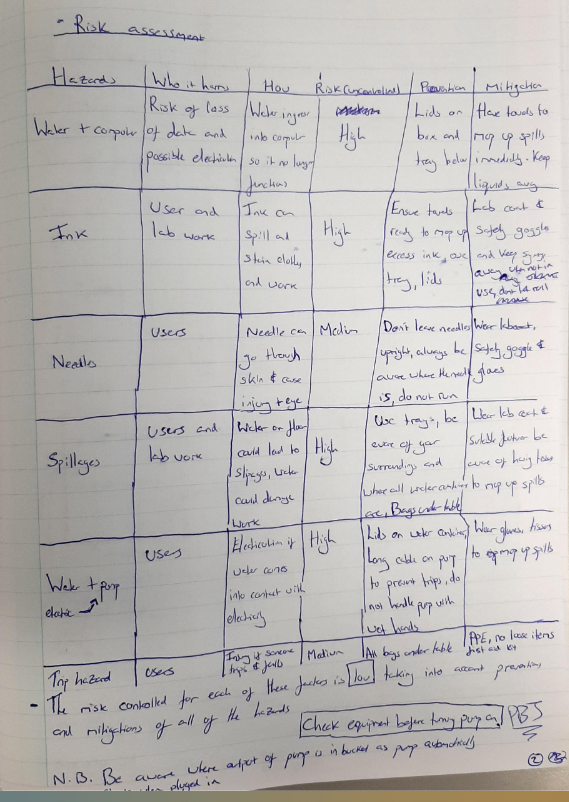 - Risk assessment
Hazards Who it harms How Risk (uncontrolled) Prevention Mitigation
Water + computer
Risk of loss
of data and
possible electrician
Water ingress
into computer
so it no longer
functions
High
Lids on
box and
tray below
Have towels to
mop up spills
immediately. Keep
liquids away
Ink
User and
lab work
Ink can
spill and
stain clothes
and work
High
Ensure towels
ready to mop up
excess ink, use
tray, lids
Lab coat &
safety goggles
and keep syringe
away when not in
use, don't let roll
Needles
Users
Needle can
go through
skin & cause
injury + eye
Medium
Don't leave needles
upright, always be
aware where the needle
is, do not run
Wear labcoat,
safety goggle &
gloves
Spillages
Users and
lab work
Water on floor
could lead to
slipages, water
could damage
work
High
Use trays, be
aware of your
surroundings and
where all water containers
are, Bags under table
Wear lab coat &
suitable footwear be
aware of having towels
to mop up spills
Water + pump
electric
Users
Electrician if
water comes
into contact with
electricity
High
Lids on water containers,
Long cable on pump
to prevent trips, do
not handle pump with
wet hands
Wear gloves, tissues
to mop up spills
Trip hazard
Users
Injury if someone
trips & falls
Medium
All bags under table
PPE, no loose items
first aid kit
- The risk controlled for each of these factors is low taking into account prevention
and mitigations of all of the hazards
Check equipment before turning pump on
PBJ
N.B. Be aware where output of pump is in bucket as pump automatically
when plugged in
2